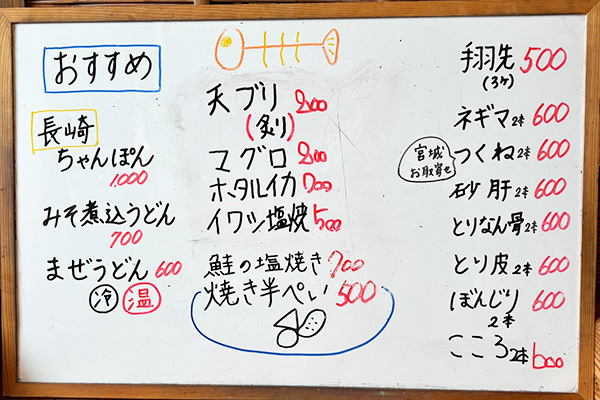 おすすめ
長崎
ちゃんぽん
1,000
みそ煮込うどん
700
まぜうどん 600
冷 温
天ブリ 800
(炙り)
マグロ 800
ホタルイカ 700
イワシ塩焼 500
鮭の塩焼き 700
焼き半ぺい 500
手羽先 500
(3ケ)
ネギマ 2本 600
宮城
お取寄せ
つくね 2本 600
砂肝 2本 600
とりなん骨 2本 600
とり皮 2本 600
ぼんじり 600
2本
こころ 2本 600